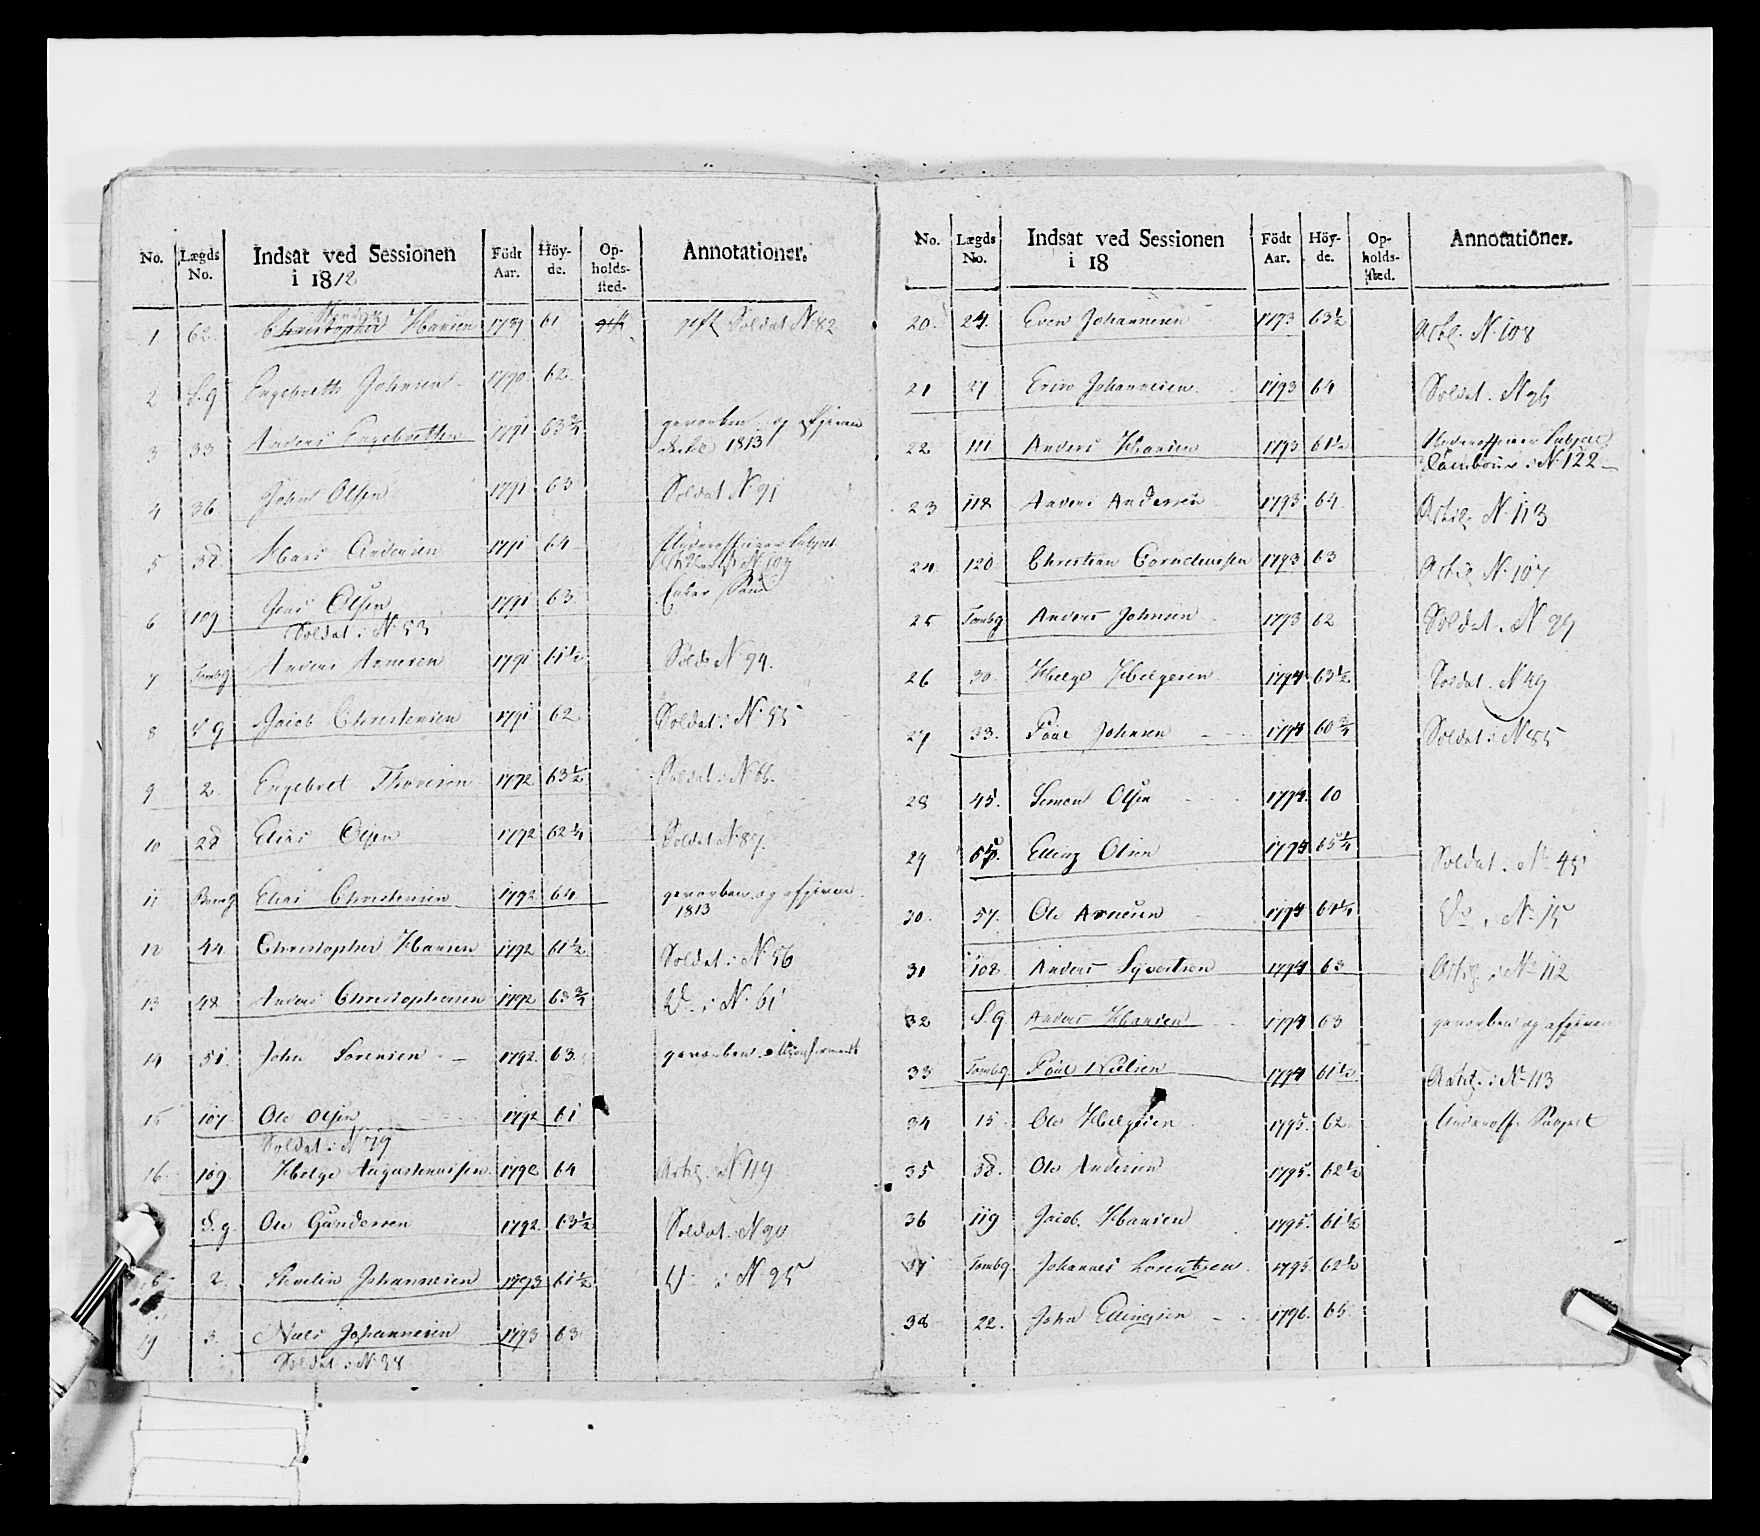 No. Lægds No. Indsat ved Sessionen i 1812 Födt Aar. Höy-de. Op-holds-sted. Annotationer.
1 62. Christopher Hansen 1789 61 gift Soldat N 82
2 S. g Engebreth Johnsen 1790 62
3 33 Anders Engebretsen 1791 63 3/4 geworben og afgiven
1813
4 36 John Olsen 1791 63 Soldat N 91
5 38 Hans Andersen 1791 64 Underofficeer Subject
N 109
6 109 Jens Olsen 1791 63
Soldat i N 53
7 Tombg Anders Arnesen 1791 61 1/2 Sold N 94.
8 S g Jacob Christensen 1791 62 Soldat i N 55
9 2. Engebret Thoresen 1792 63 1/2 Soldat i N 66.
10 28 Elias Olsen 1792 62 3/4 Soldat N 87.
11 Borg Elias Christensen 1792 64 geworben og afgiven
1813
12 44 Christopher Hansen 1792 61 1/2 Soldat i N 56
13 48 Anders Christophersen 1792 63 3/4 Do i N 61
14 51. John Sorensen 1792. 63. geworben
15 107 Ole Olsen 1792 61
Soldat i N 79
16 109 Helge Augustinussen 1792 64 Artig. N 119
S. g. Ole Gundersen 1792. 63 1/2 Soldat i N 90
2. Johannesen 1793 61 1/2 Do i N 95
19 3. Niels Johannesen 1793 63
Soldat i N 38
No. Lægds No. Indsat ved Sessionen i 18 Födt Aar. Höy-de. Op-holds-sted. Annotationer.
20. 24. Even Johannesen 1793 63 1/2 Artig. N 108
21 27 Johannesen 1793 64 Soldat. N 96
22 111 Anders Hansen 1793 61 1/2 Underofficeer Subject
Tambour i N 122
23 118 Anders Andersen 1793 64 Artig. N 113
24 120 Christian Corneliussen 1793 63 Artig N 107
25 Tombg Anders Johnsen 1793 62 Soldat. N 99
26 30. Helge Helgesen 1794 63 1/2 Soldat. N 49
27 33. Poul Johnsen 1794 60 3/4 Soldat i N 85
28 45. Simon Olsen 1794. 60
29 Elling Olsen 1794 65 1/4 Soldat. No 45
30. 57. Ole Arnesen 1794 61 1/4 Do i N 15
31 108. Anders Syvertsen 1794 63 Artig. i No 112
32 S. g Anders Hansen 1794 63 geworben og afgiven
33 Tombg. Poul Nielsen 1794 61 1/2 Artig. i No 113
34 15. Ole Helgesen 1795. 62 Underoff. Subject
35 38. Ole Andersen 1795. 62 1/2
36 119 Jacob Hansen 1795. 61 1/2
37 Tombg. Johannes Lorentzen 1795 62 1/2
38 22. John Ellingsen 1796. 65